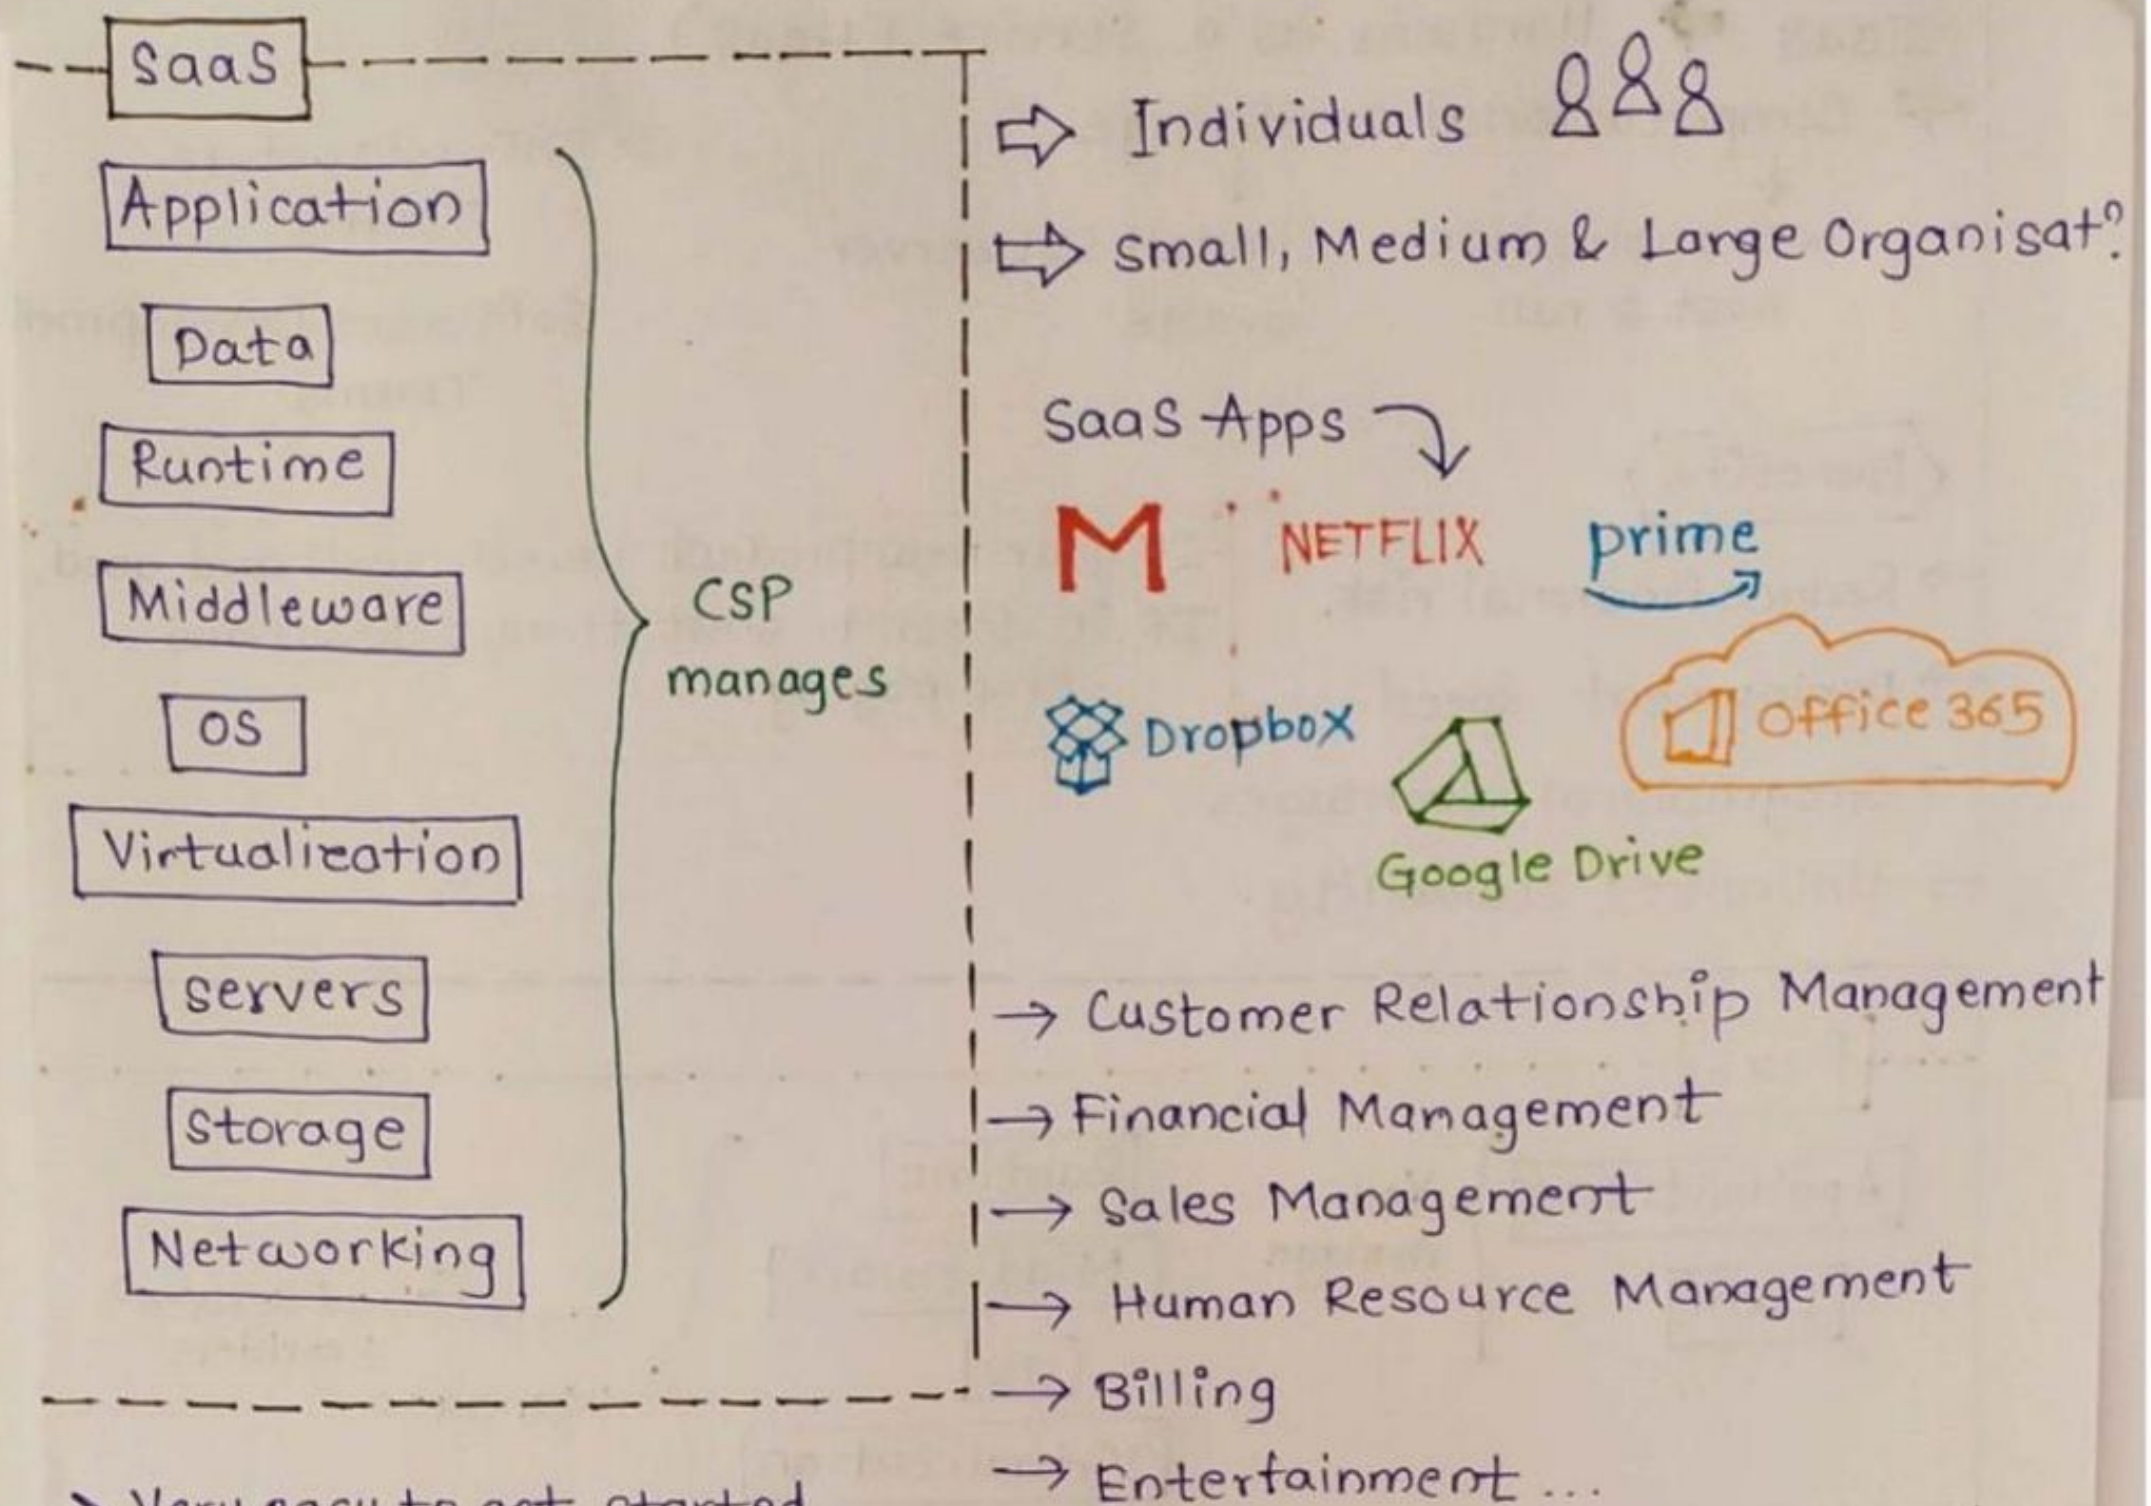 SaaS
Application
Data
Runtime
Middleware
OS
Virtualization
servers
storage
Networking
CSP
manages
Individuals
Small, Medium & Large Organisatⁿ
SaaS Apps
M
NETFLIX
prime
Dropbox
Office 365
Google Drive
→ Customer Relationship Management
→ Financial Management
→ Sales Management
→ Human Resource Management
→ Billing
→ Entertainment ...
Very easy to get started